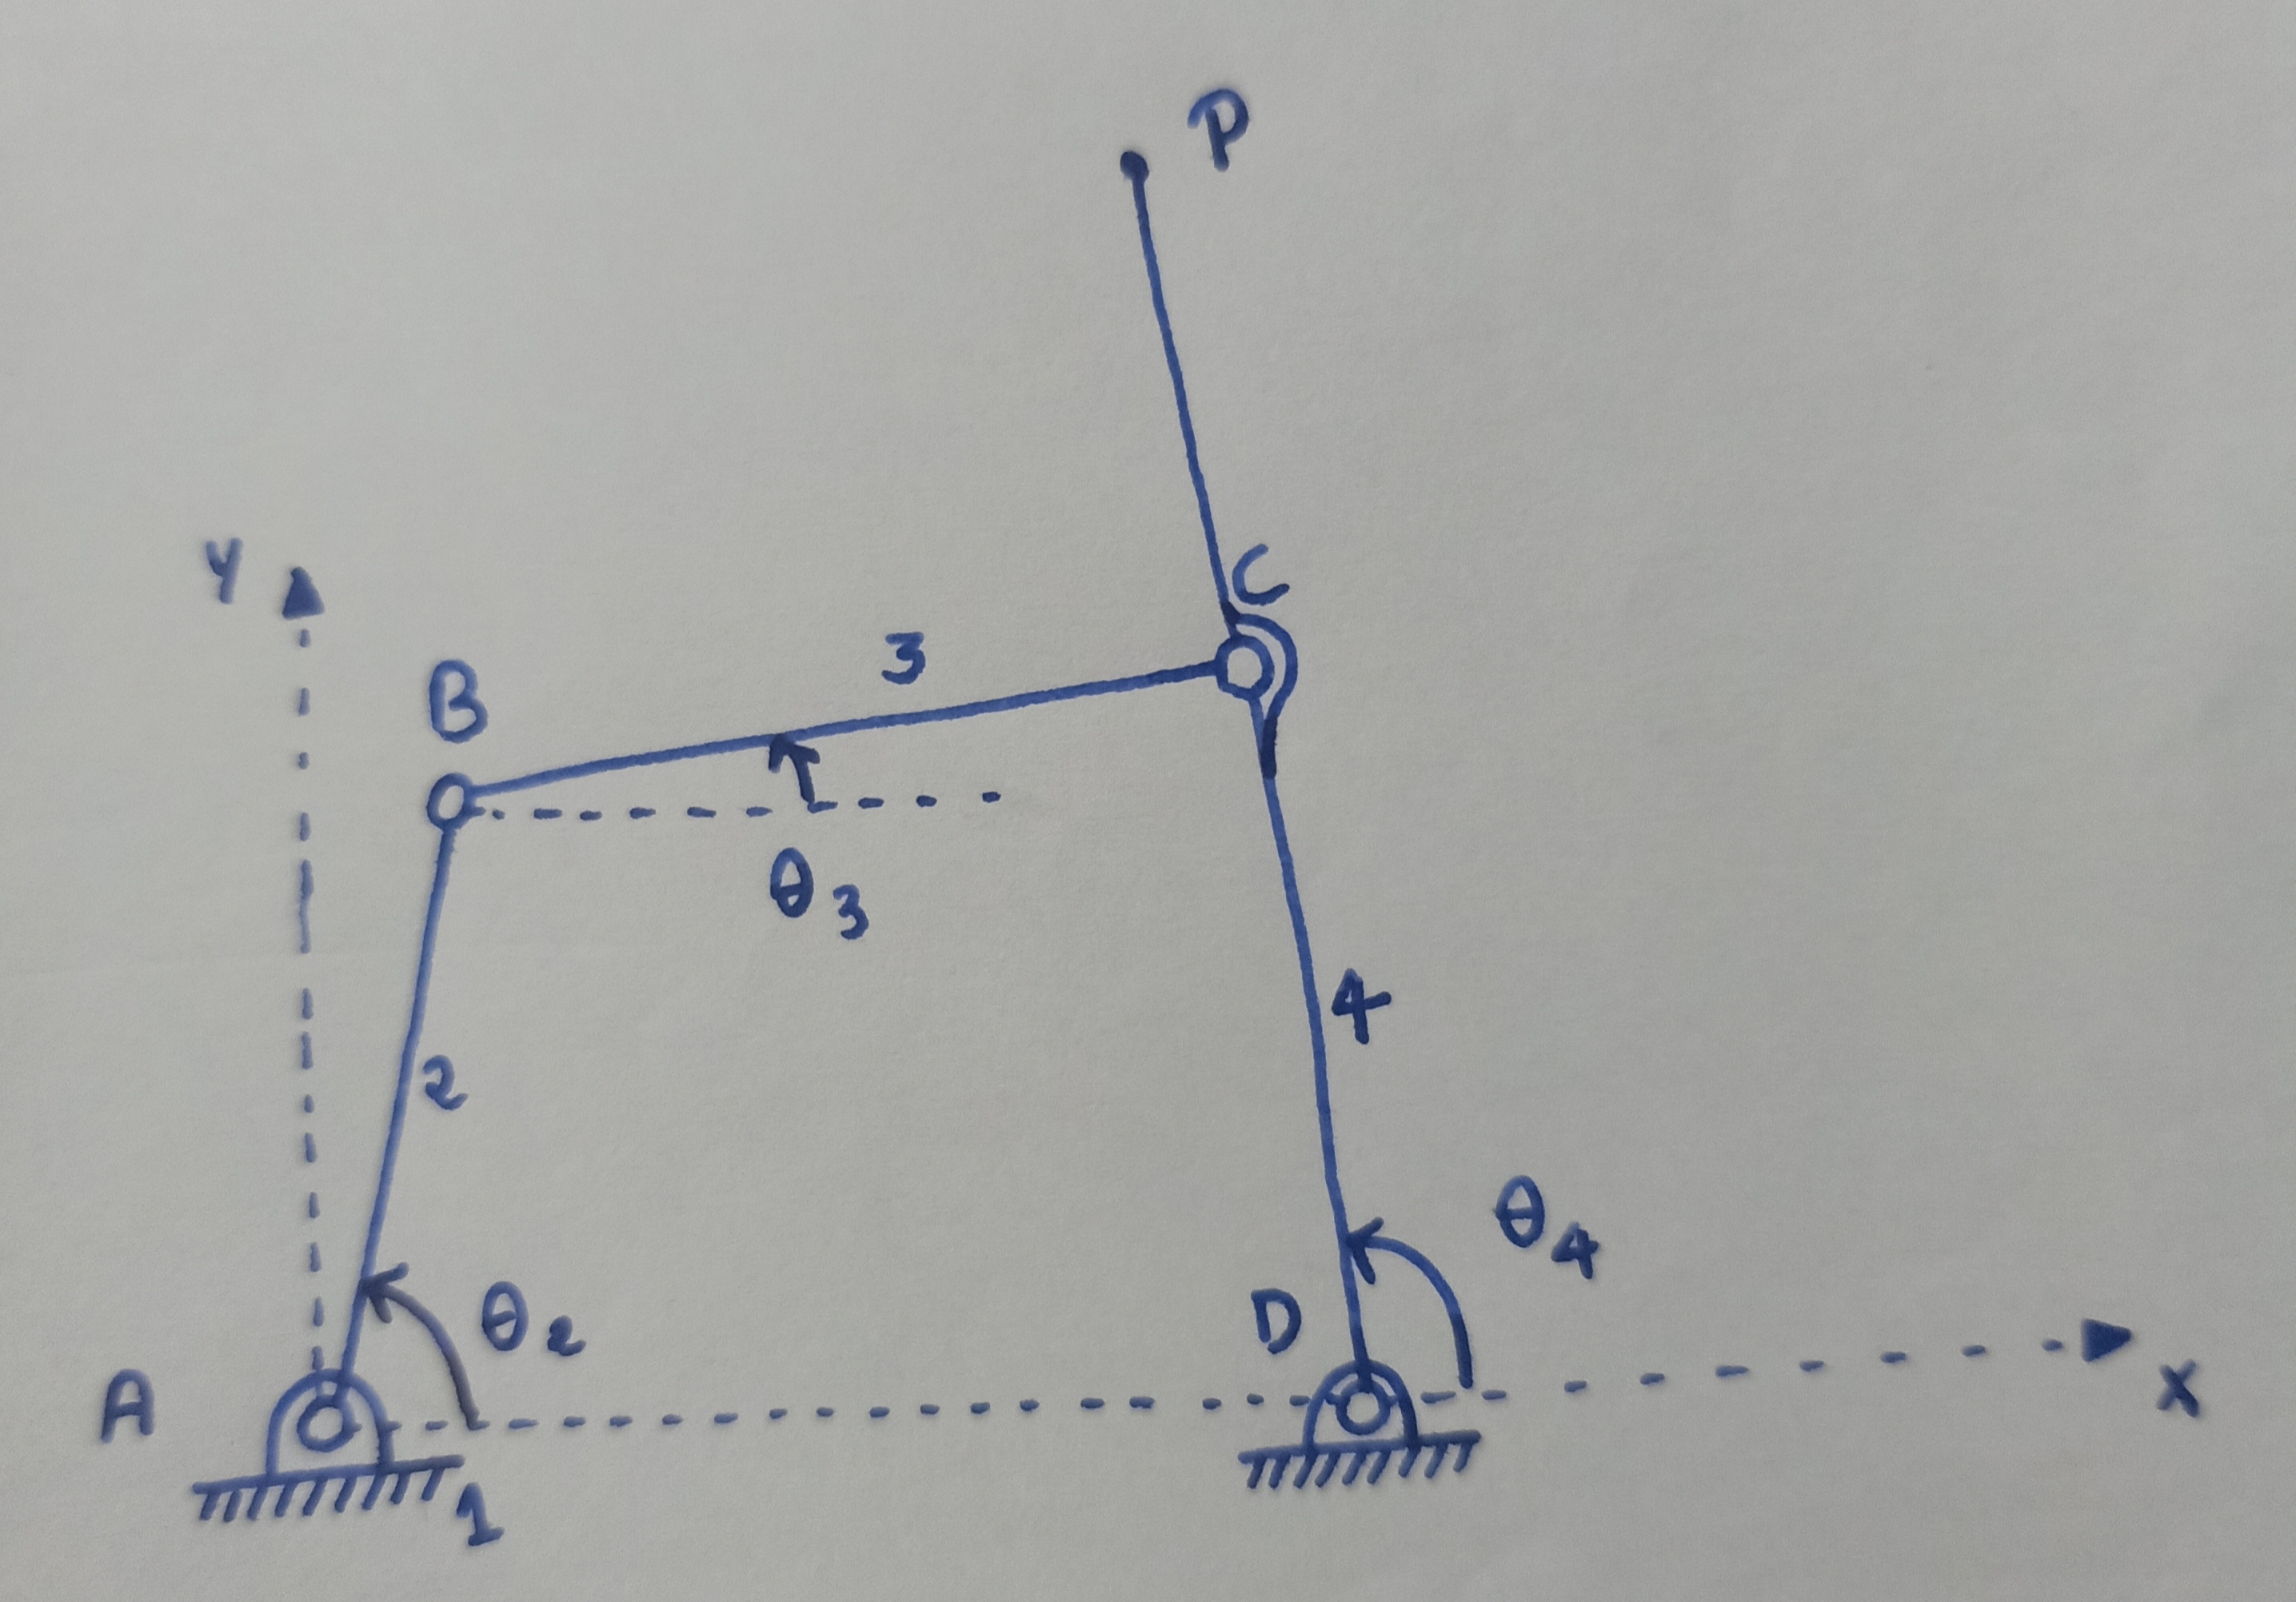 P
C
Y
3
B
θ3
4
2
θ4
θ2
D
A
X
1